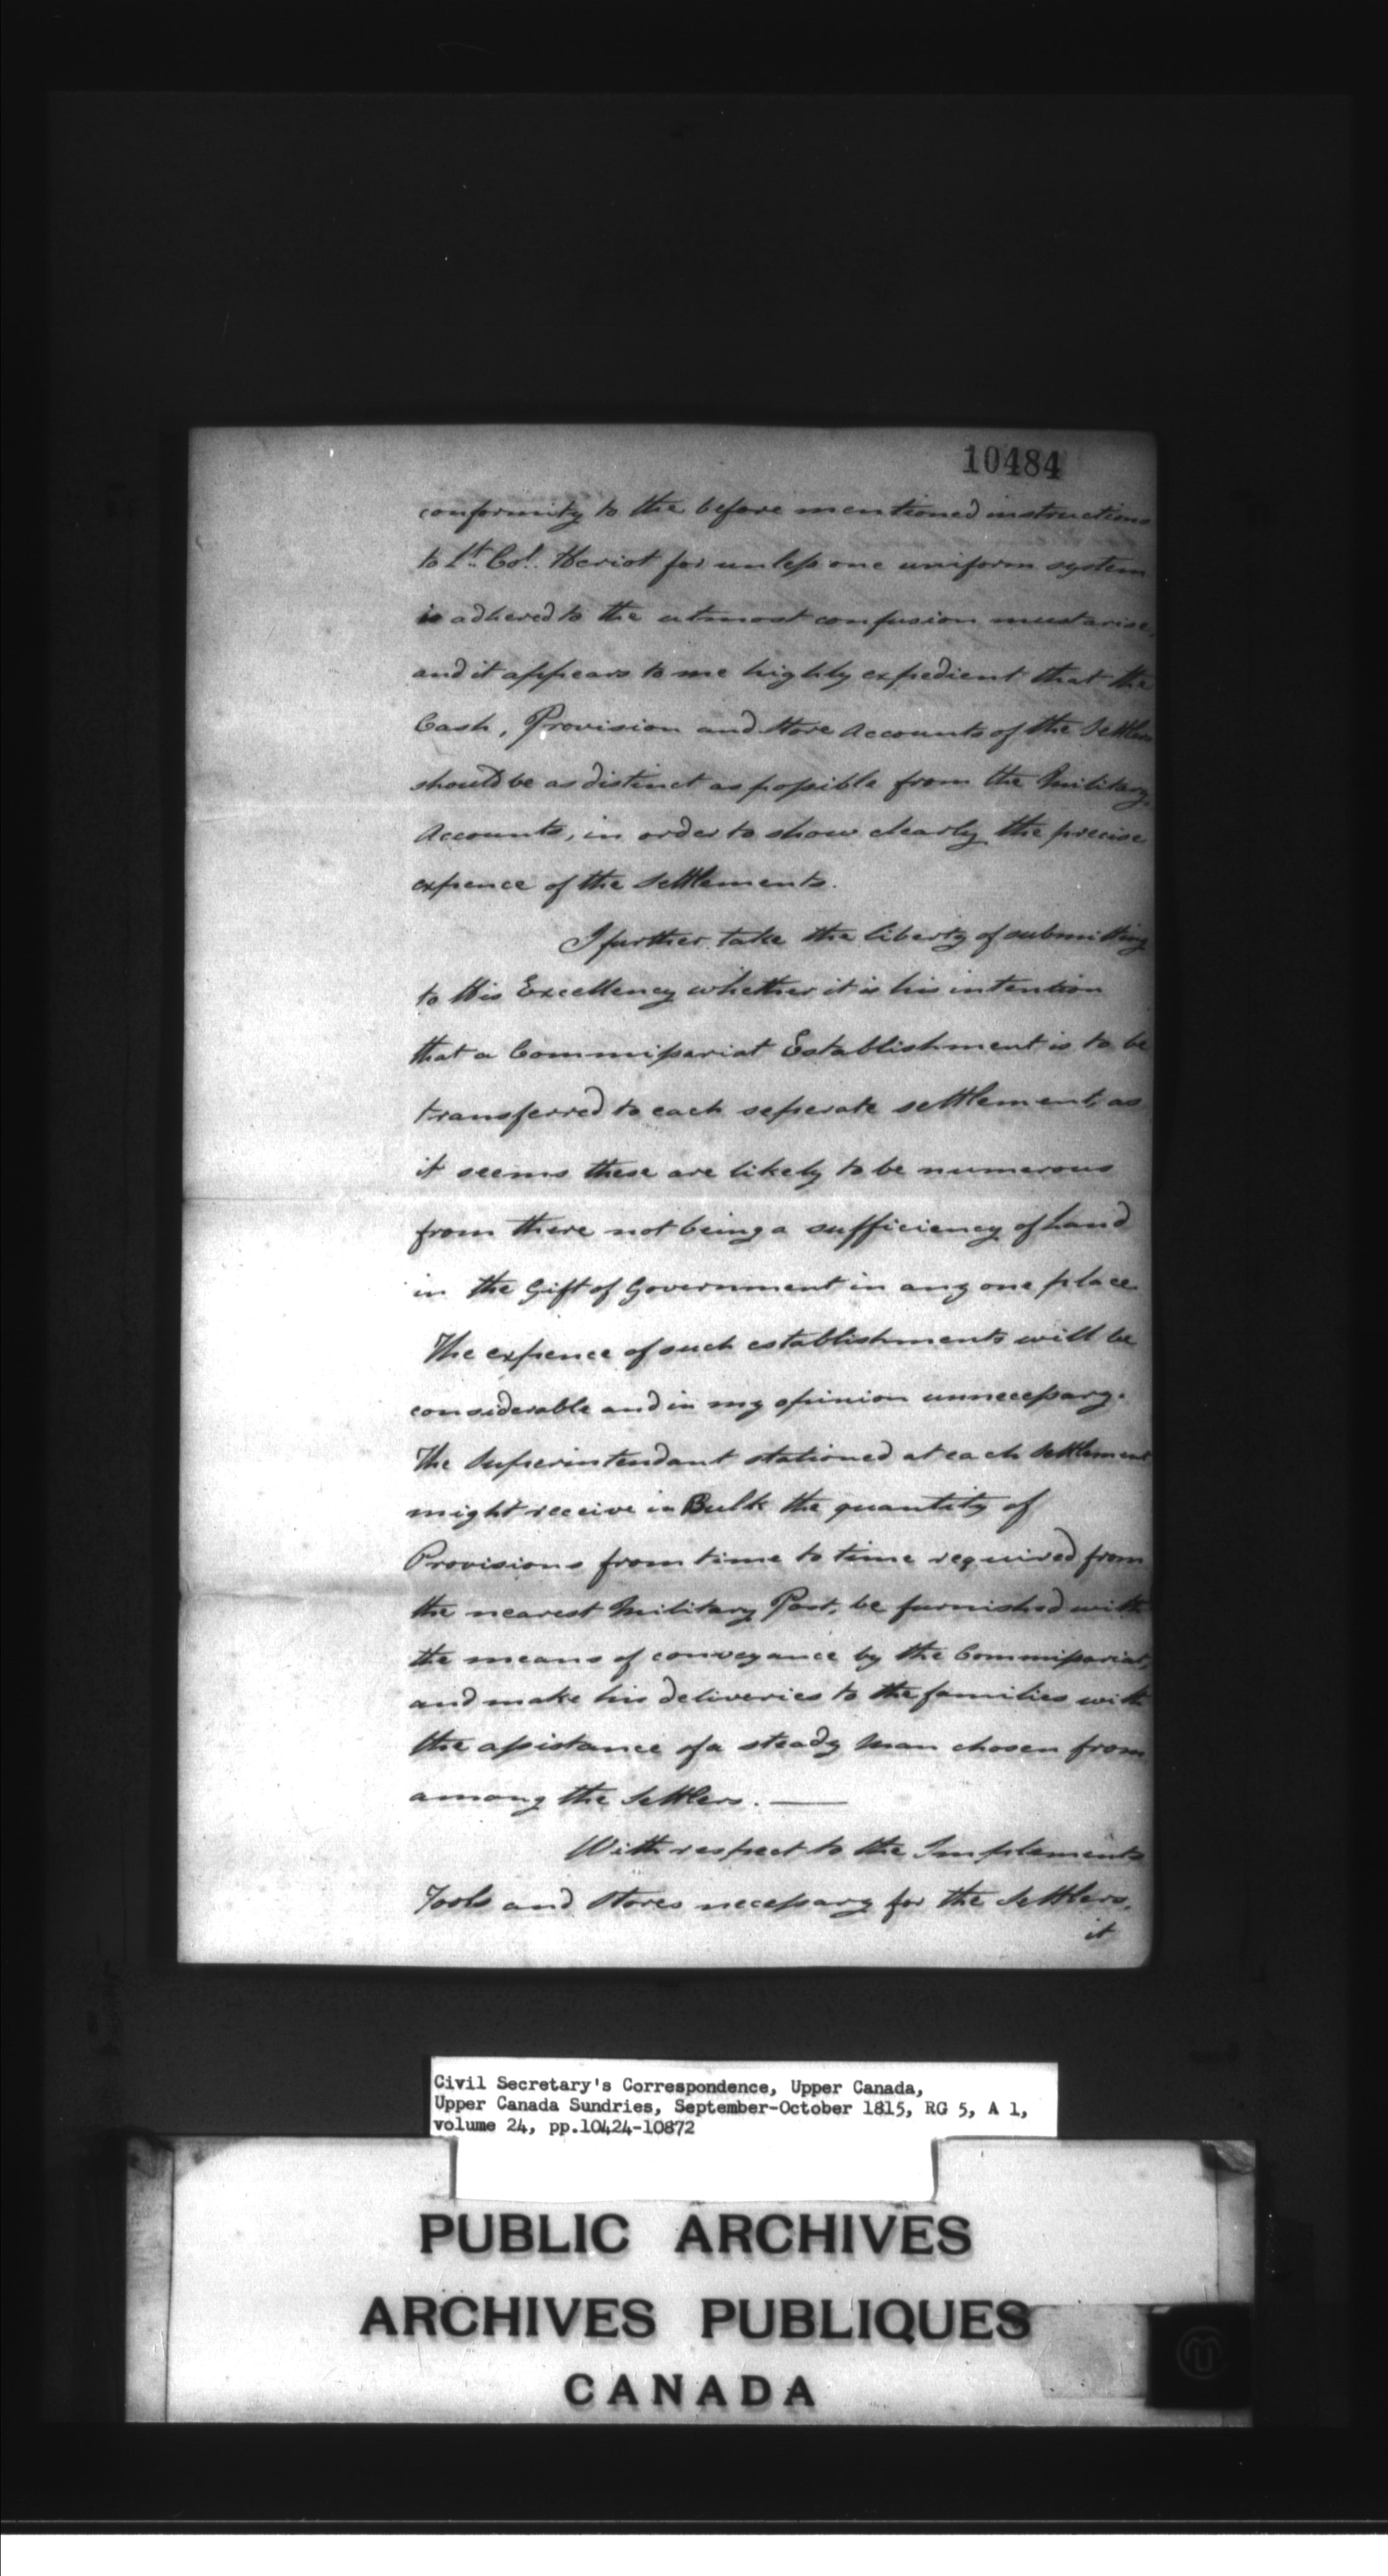 10484
conformity to the before mentioned instructions
to Lt. Col. Heriot for unless one uniform system
is adhered to the utmost confusion must arise,
and it appears to me highly expedient that the
Cash, Provision and Store Accounts of the Settlers
should be as distinct as possible from the Military
Accounts, in order to show clearly the precise
expence of the Settlements.
I further take the liberty of submitting
to His Excellency whether it is his intention
that a Commissariat Establishment is to be
transferred to each seperate settlement, as
it seems these are likely to be numerous
from there not being a sufficiency of Land
in the Gift of Government in any one place
The expence of such establishments will be
considerable and in my opinion unnecessary.
The Superintendant stationed at each Settlement
might receive in Bulk the quantity of
Provisions from time to time required from
the nearest Military Post, be furnished with
the means of conveyance by the Commissariat,
and make his deliveries to the families with
the assistance of a steady Man chosen from
among the Settlers. —
With respect to the Implements
Tools and Stores necessary for the Settlers,
it
Civil Secretary's Correspondence, Upper Canada,
Upper Canada Sundries, September-October 1815, RG 5, A 1,
volume 24, pp.10424-10872
PUBLIC ARCHIVES
ARCHIVES PUBLIQUES
CANADA